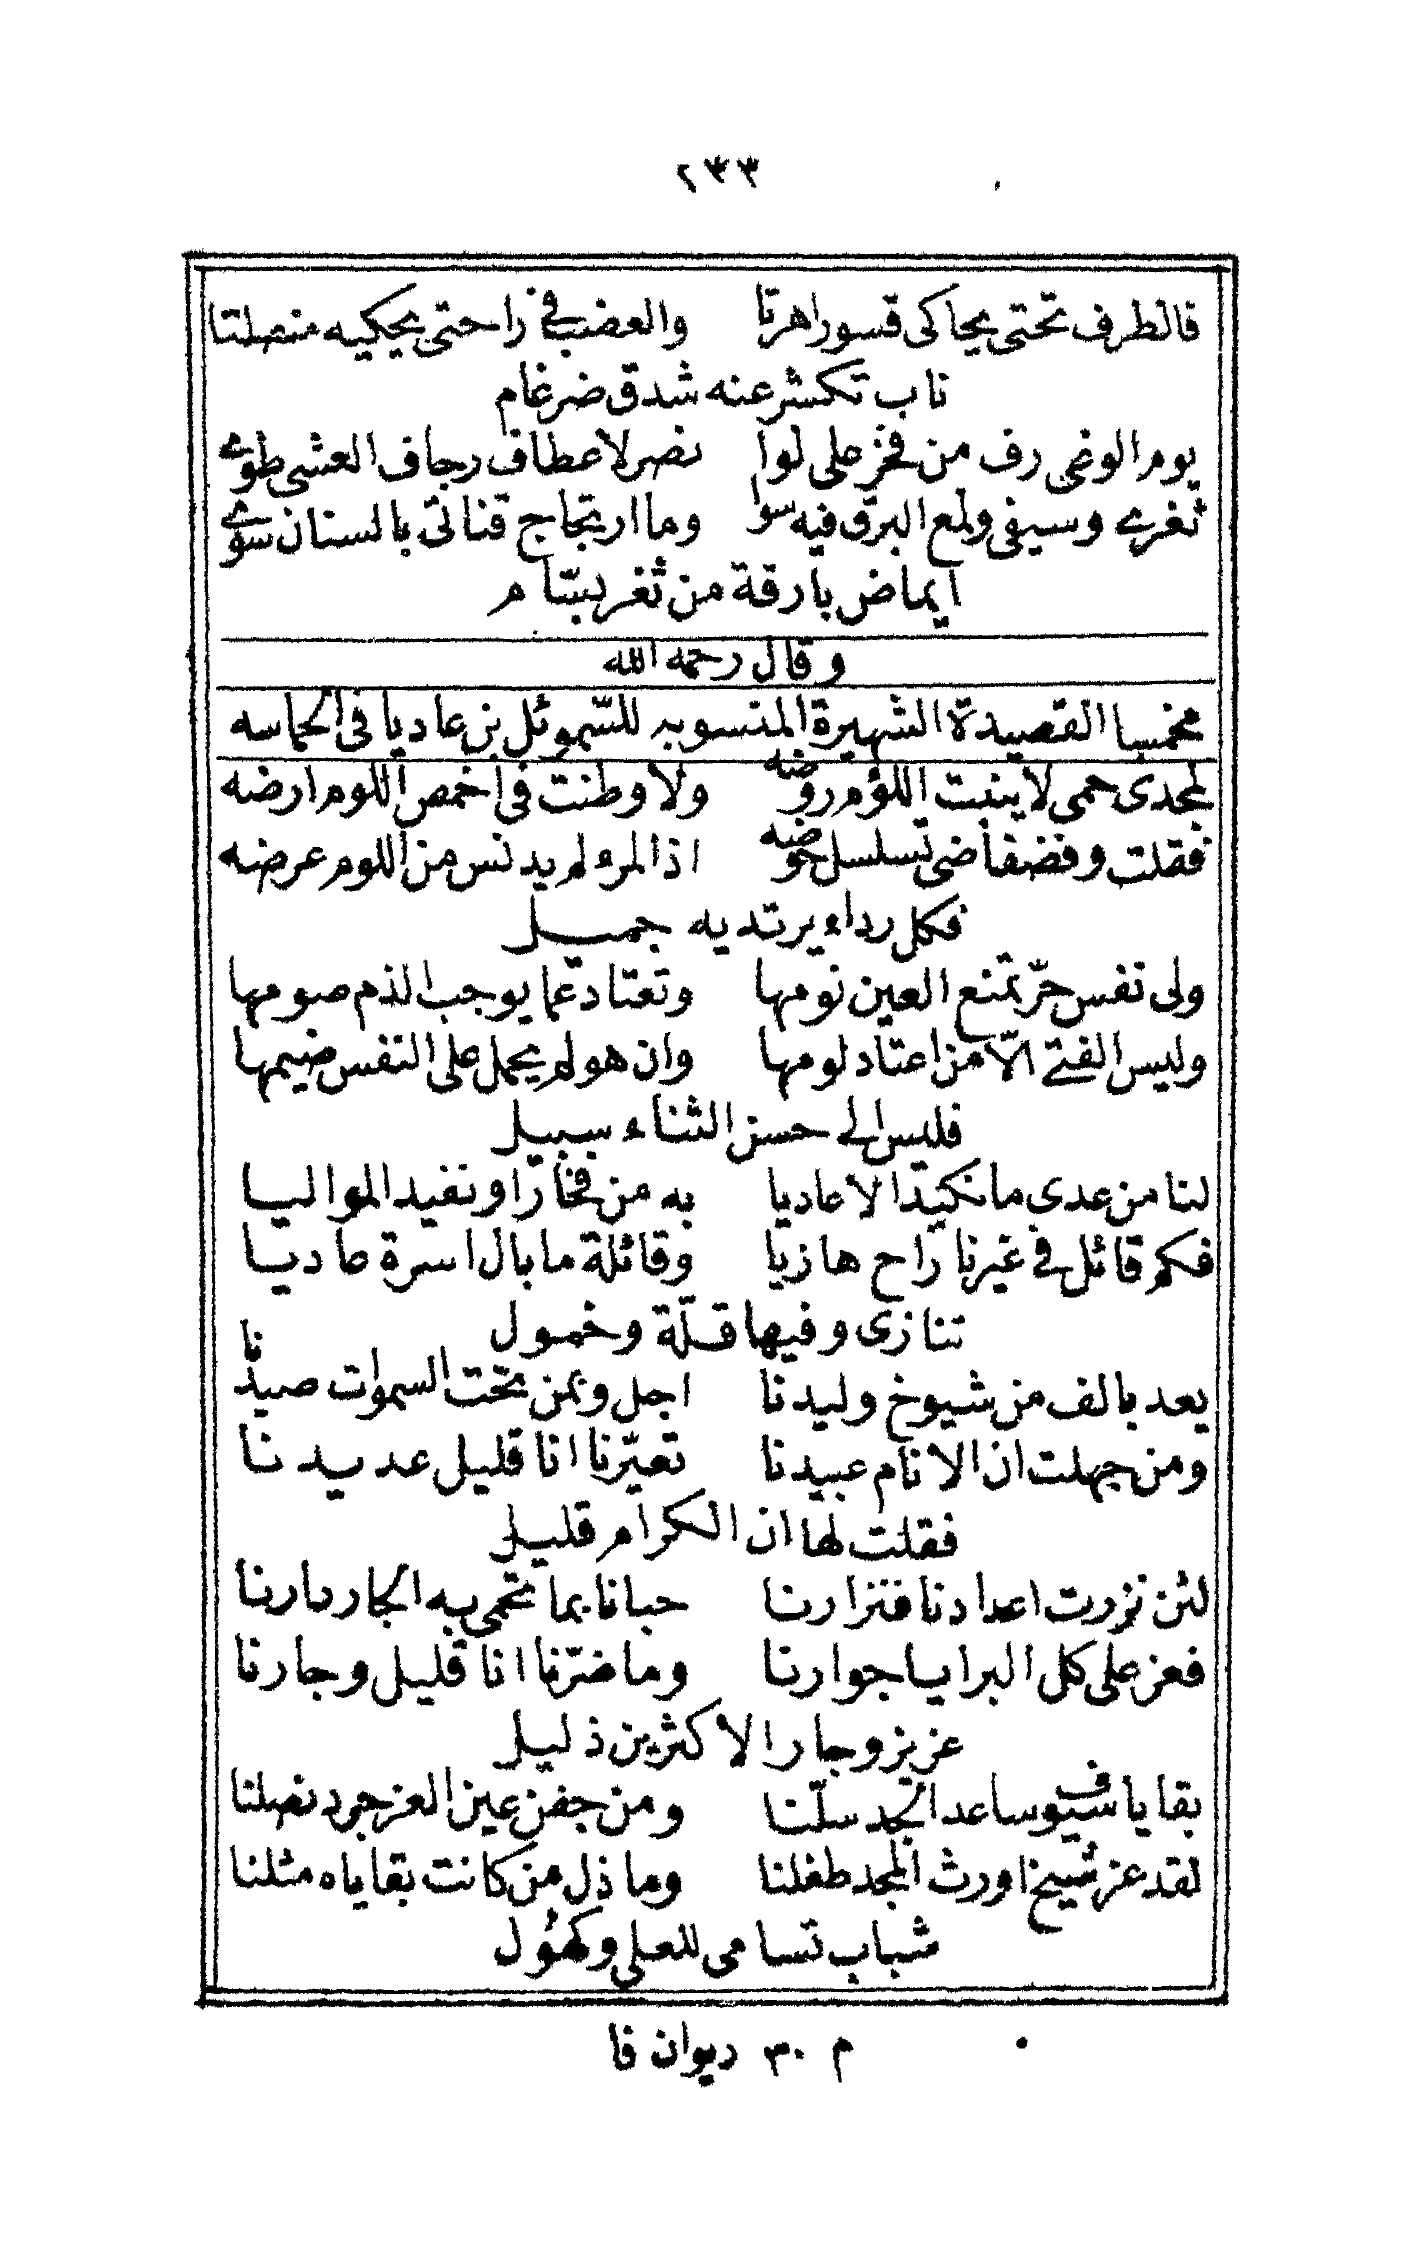 ٢٣٣
فالطرف تحتى يحاكى قسورا هرتا والعضب فے راحتى يحكيه منصلتا
ناب تكشر عنه شدق ضرغام
يوم الوغى رف من فخر على لوا نضر لاعطاف رجاف العشى طوے
ثغرے وسيفى ولمع البرق فيه سوا وما ارتجاج قناتى بالسنان سوے
ايماض بارقة من ثغر بسّام
وقال رحمه الله
مخمسا القصيدة الشهيرة المنسوبه للسّموئل بن عاديا فى الحماسه
لمجدى حمى لاينبت اللؤم روضه ولا وطنت فى اخمص اللوم ارضه
فقلت وفضفاضى تسلسل حوضه اذا المرء لم يدنس من اللوم عرضه
فكل رداء يرتديه جميل
ولى نفس حرّ تمنع العين نومها وتعتاد عما يوجب الذم صومها
وليس الفتے الّا من اعتاد لومها وان هو لم يحمل على النفس ضيمها
فليس الى حسن الثناء سبيل
لنا من عدى مانكيد الاعاديا به من فخار او نفيد المواليا
فكم قائل فے غيرنا راح هازيا وقائلة مابال اسرة عاديا
تنازى وفيها قلّة وخمول
يعد بالف من شيوخ وليدنا اجل وبمن تحت السموات صيدنا
ومن جهلت ان الانام عبيدنا تعيّرنا انا قليل عديدنا
فقلت لها ان الكرام قليل
لئن نزرت اعدادنا فنزارنا حبانا بما نحمى به الجار دارنا
فعز على كل البرايا جوارنا وما ضرّنا انا قليل وجارنا
عزيز وجار الاكثرين ذليل
بقايا سيوف ساعد الجد سلّتنا ومن جفن عين العز جرد نصلنا
لقد عز شيخ اورث المجد طفلنا وما ذل من كانت بقاياه مثلنا
شباب تسامى للعلى وكهُول
م ٣٠ ديوان فا